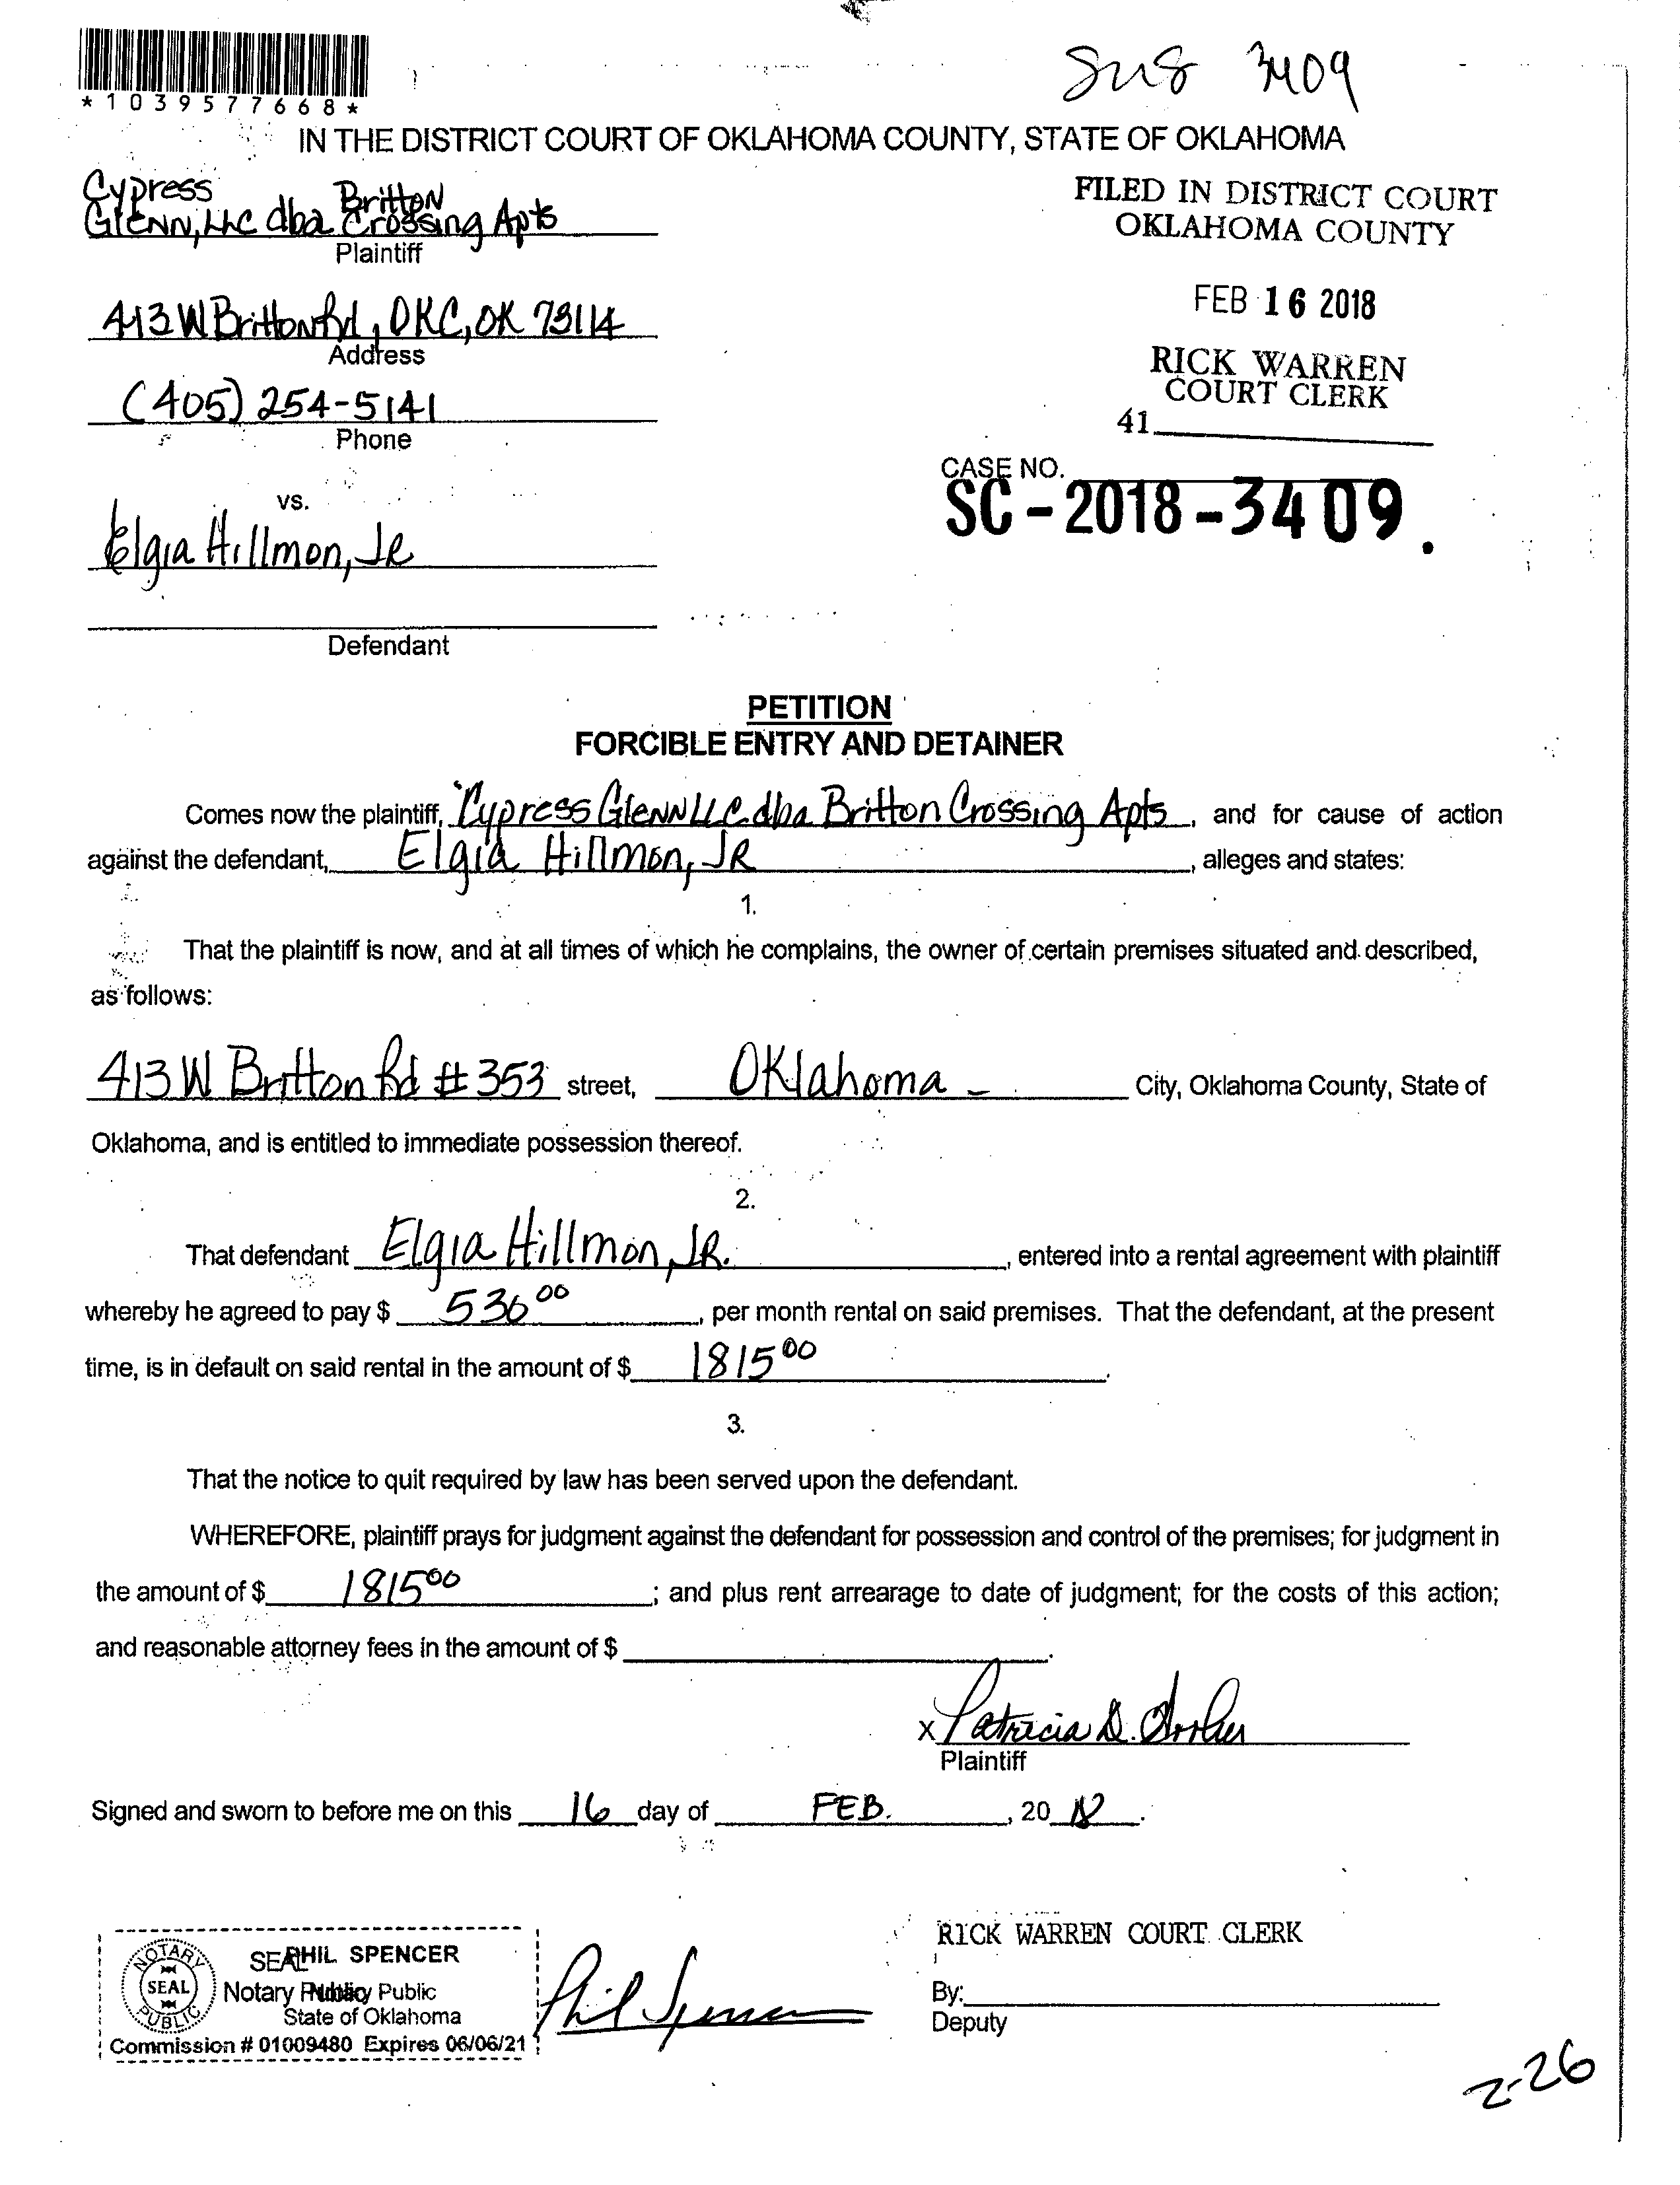 *1039577668*
3409
IN THE DISTRICT COURT OF OKLAHOMA COUNTY, STATE OF OKLAHOMA
Cypress
Glenn, LLC dba Britton Crossing Apts
Plaintiff
FILED IN DISTRICT COURT
OKLAHOMA COUNTY
413 W Britton Rd, OKC, OK 73114
Address
FEB 16 2018
(405) 254-5141
Phone
RICK WARREN
COURT CLERK
41
vs.
CASE NO.
SC-2018-3409
Elgia Hillmon, JR
Defendant
PETITION
FORCIBLE ENTRY AND DETAINER
Comes now the plaintiff, Cypress Glenn LLC dba Britton Crossing Apts, and for cause of action
against the defendant, Elgia Hillmon, JR, alleges and states:
1.
That the plaintiff is now, and at all times of which he complains, the owner of certain premises situated and described,
as follows:
413 W Britton Rd # 353 street, Oklahoma - City, Oklahoma County, State of
Oklahoma, and is entitled to immediate possession thereof.
2.
That defendant Elgia Hillmon, JR., entered into a rental agreement with plaintiff
whereby he agreed to pay $ 536 00, per month rental on said premises. That the defendant, at the present
time, is in default on said rental in the amount of $ 1815 00.
3.
That the notice to quit required by law has been served upon the defendant.
WHEREFORE, plaintiff prays for judgment against the defendant for possession and control of the premises; for judgment in
the amount of $ 1815 00; and plus rent arrearage to date of judgment; for the costs of this action;
and reasonable attorney fees in the amount of $
x Patricia D.
Plaintiff
Signed and sworn to before me on this 16 day of FEB., 20 18.
NOTARY PUBLIC SEAL
SEAL PHIL SPENCER
Notary Public Notary Public
State of Oklahoma
Commission # 01009480 Expires 06/06/21
Phil Spencer
RICK WARREN COURT CLERK
By:
Deputy
2-26